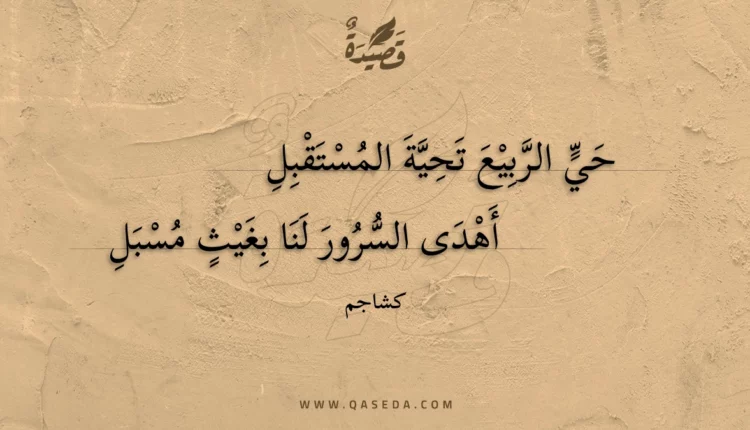 قَصِيْدَةٌ
حَيٍّ الرَّبِيْعَ تَحِيَّةَ المُسْتَقْبِلِ
أَهْدَى السُّرُورَ لَنَا بِغَيْثٍ مُسْبَلِ
كشاجم
WWW.QASEDA.COM